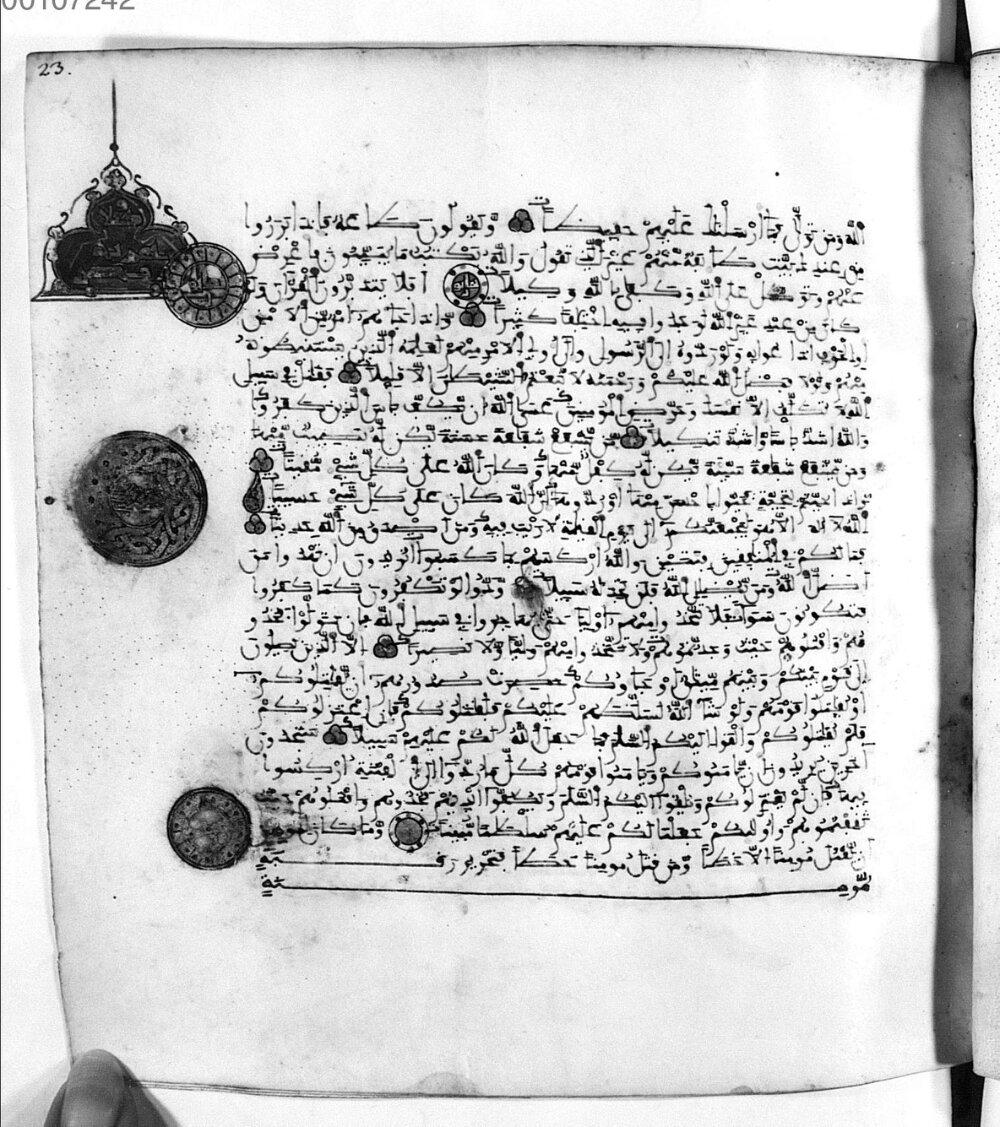 23.
الله ومن تولى فما أرسلنك عليهم حفيظا ويقولون طاعة فإذا برزوا
من عندك بيت طائفة منهم غير الذي تقول والله يكتب ما يبيتون فأعرض
عنهم وتوكل على الله وكفى بالله وكيلا أفلا يتدبرون القرآن ولو
كان من عند غير الله لوجدوا فيه اختلفا كثيرا وإذا جاءهم أمر من الأمن
أو الخوف أذاعوا به ولو ردوه إلى الرسول وإلى أولي الأمر منهم لعلمه الذين يستنبطونه
منهم ولولا فضل الله عليكم ورحمته لاتبعتم الشيطن إلا قليلا فقتل في سبيل
الله لا تكلف إلا نفسك وحرض المومنين عسى الله أن يكف بأس الذين كفروا
والله أشد بأسا وأشد تنكيلا من يشفع شفعة حسنة يكن له نصيب منها
ومن يشفع شفعة سيئة يكن له كفل منها وكان الله على كل شيء مقيتا
وإذا حييتم بتحية فحيوا بأحسن منها أو ردوها إن الله كان على كل شيء حسيبا
الله لا إله إلا هو ليجمعنكم إلى يوم القيمة لا ريب فيه ومن أصدق من الله حديثا
فما لكم في المنفقين فئتين والله أركسهم بما كسبوا أتريدون أن تهدوا من
أضل الله ومن يضلل الله فلن تجد له سبيلا ودوا لو تكفرون كما كفروا
فتكونون سواء فلا تتخذوا منهم أولياء حتى يهاجروا في سبيل الله فإن تولوا فخذو
هم واقتلوهم حيث وجدتموهم ولا تتخذوا منهم وليا ولا نصيرا إلا الذين يصلون
إلى قوم بينكم وبينهم ميثق أو جاءوكم حصرت صدورهم أن يقتلوكم
أو يقتلوا قومهم ولو شاء الله لسلطهم عليكم فلقتلوكم فإن اعتزلوكم
فلم يقتلوكم وألقوا إليكم السلم فما جعل الله لكم عليهم سبيلا ستجدون
آخرين يريدون أن يأمنوكم ويأمنوا قومهم كل ما ردوا إلى الفتنة أركسوا
فيها فإن لم يعتزلوكم ويلقوا إليكم السلم ويكفوا أيديهم فخذوهم واقتلوهم حيث
ثقفتموهم وأولئكم جعلنا لكم عليهم سلطنا مبينا وما كان لمومن
أن يقتل مومنا إلا خطأ ومن قتل مومنا خطأ فتحرير رقبة
مومنة